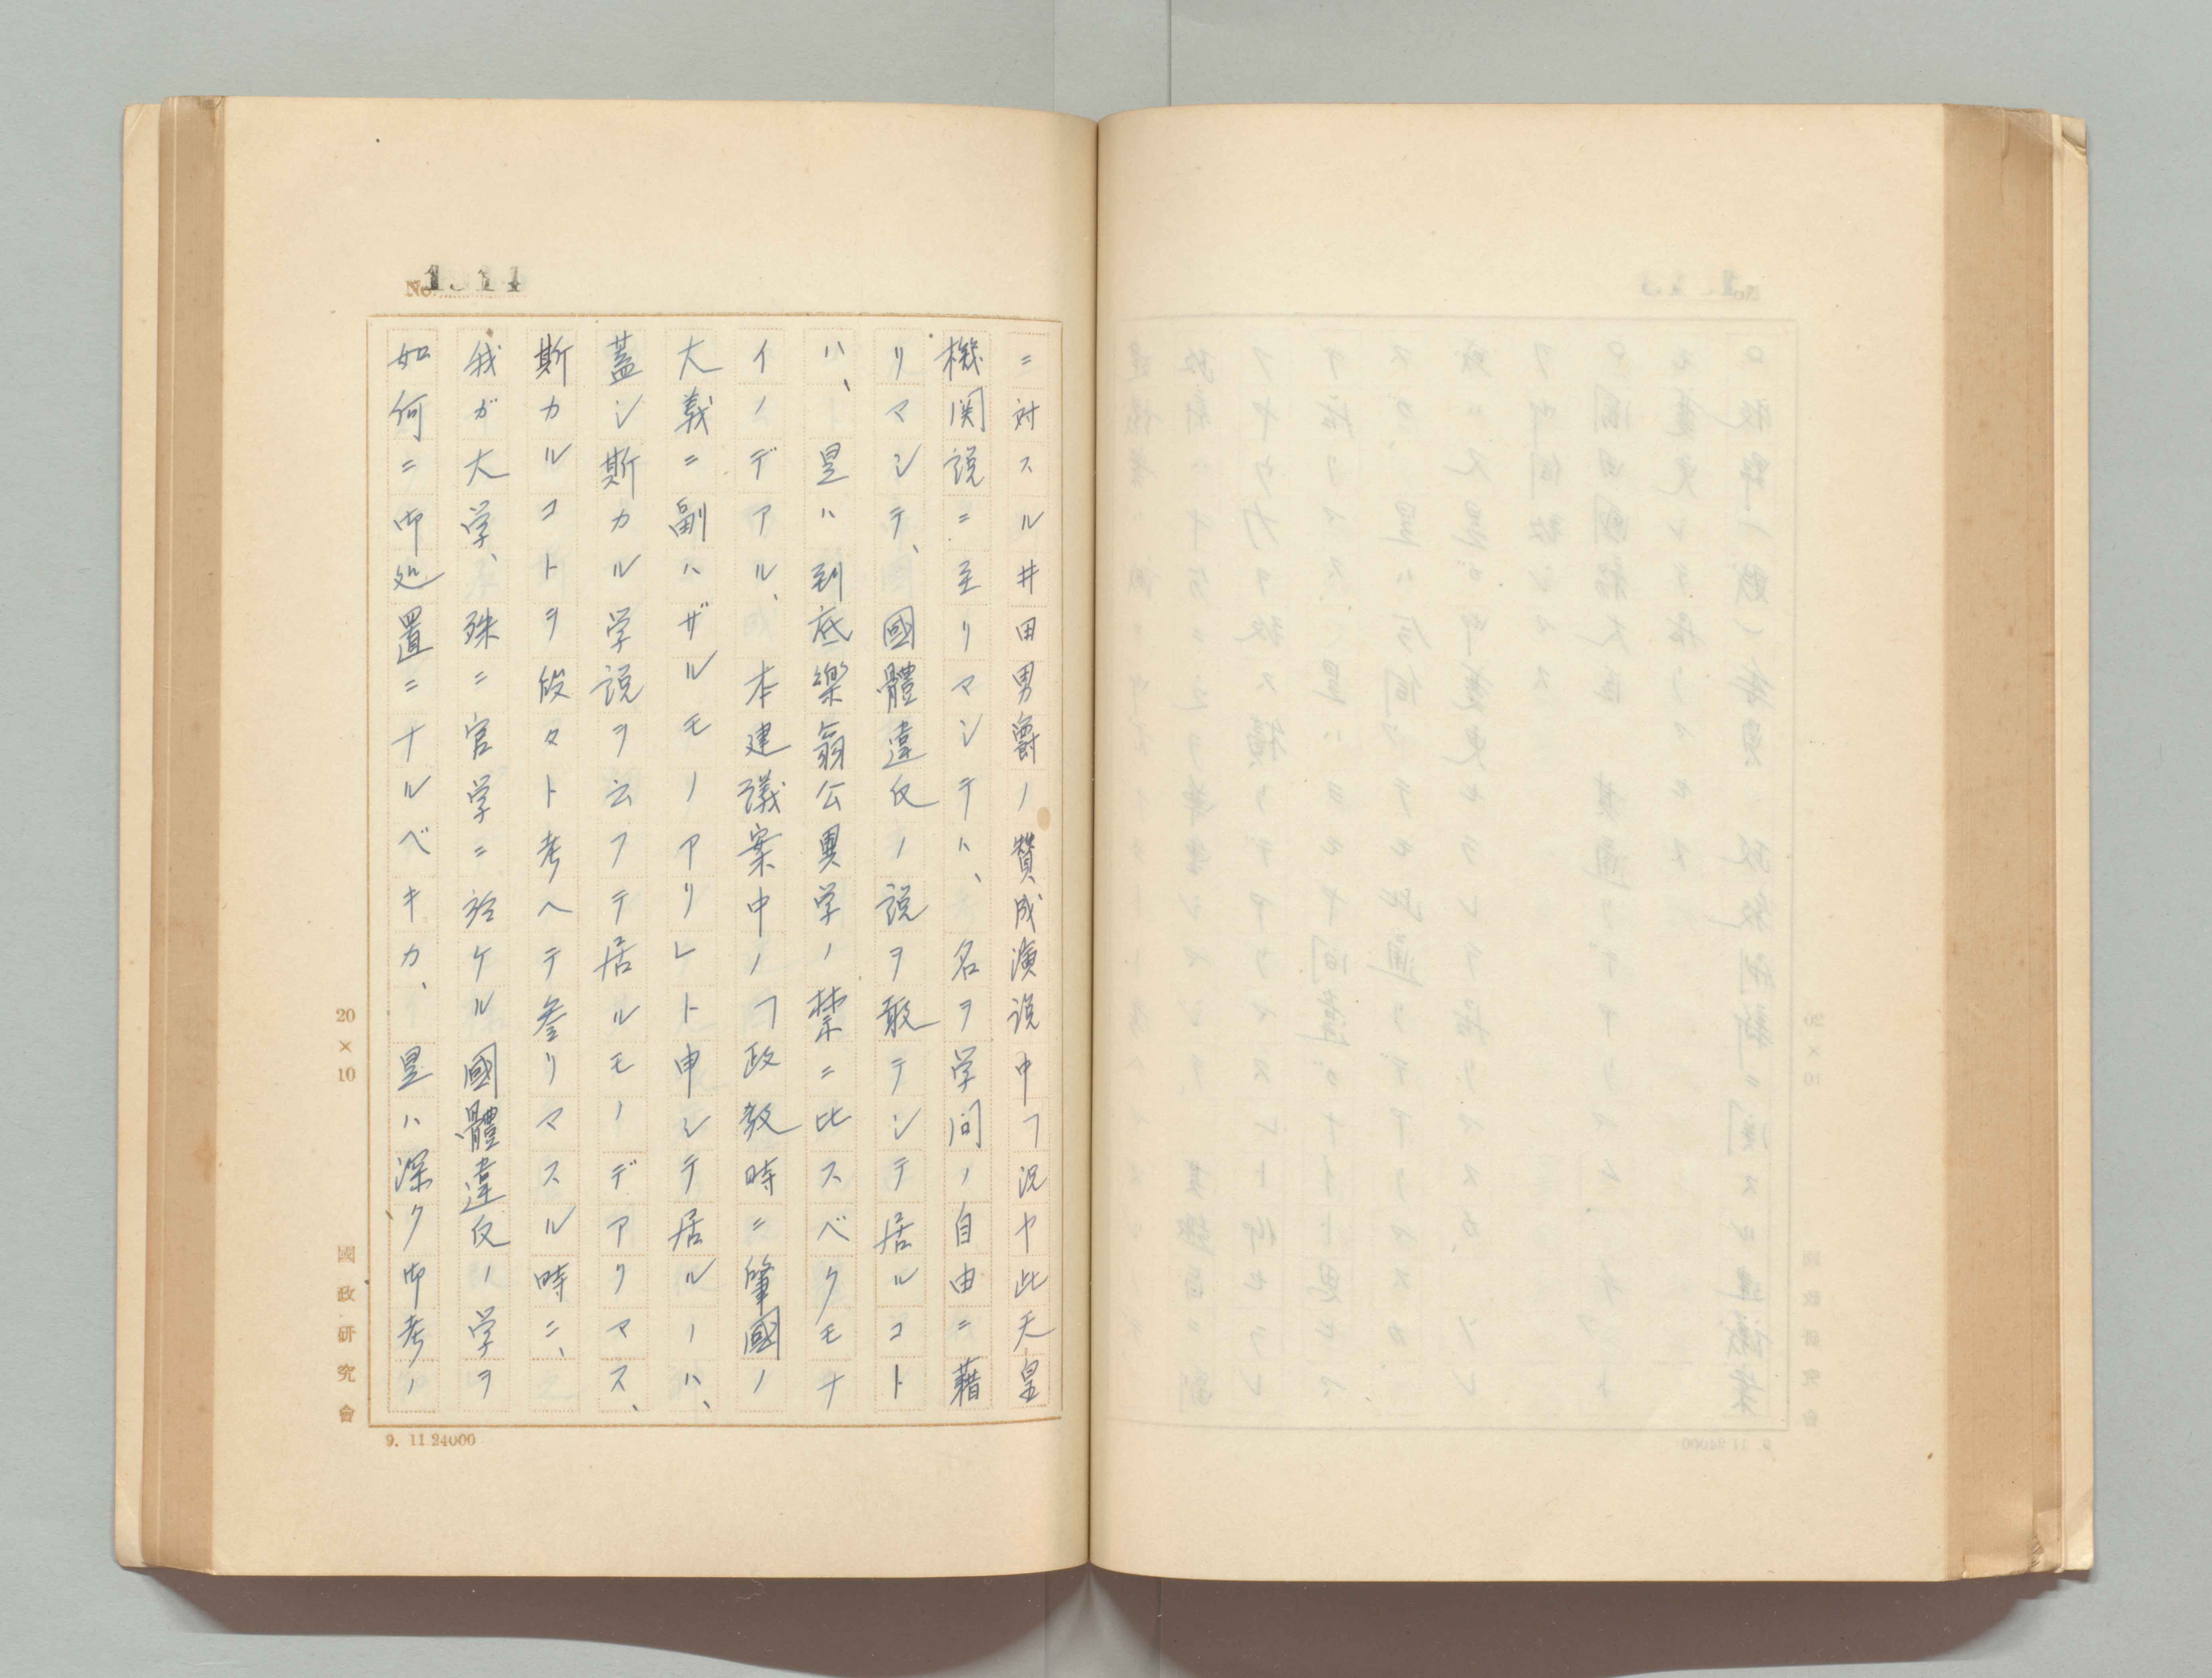 No. 1914
ニ対スル井田男爵ノ賛成演説中「況ヤ此天皇
機関説ニ至リマシテハ、名ヲ学问ノ自由ニ藉
リマシテ、國體違反ノ説ヲ敢テシテ居ルコト
ハ、是ハ到底樂翁公異学ノ禁ニ比スベクモナ
イノデアル、本建議案中ノ「政教時ニ肇國ノ
大義ニ副ハザルモノアリ」ト申シテ居ルノハ、
蓋シ斯カル学説ヲ云フテ居ルモノデアリマス、
斯カルコトヲ段々ト考ヘテ參リマスル時ニ、
我ガ大学、殊ニ官学ニ於ケル國體違反ノ学ヲ
如何ニ御処置ニナルベキカ、是ハ深ク御考ノ
20×10
國政研究會
9. 11 24000